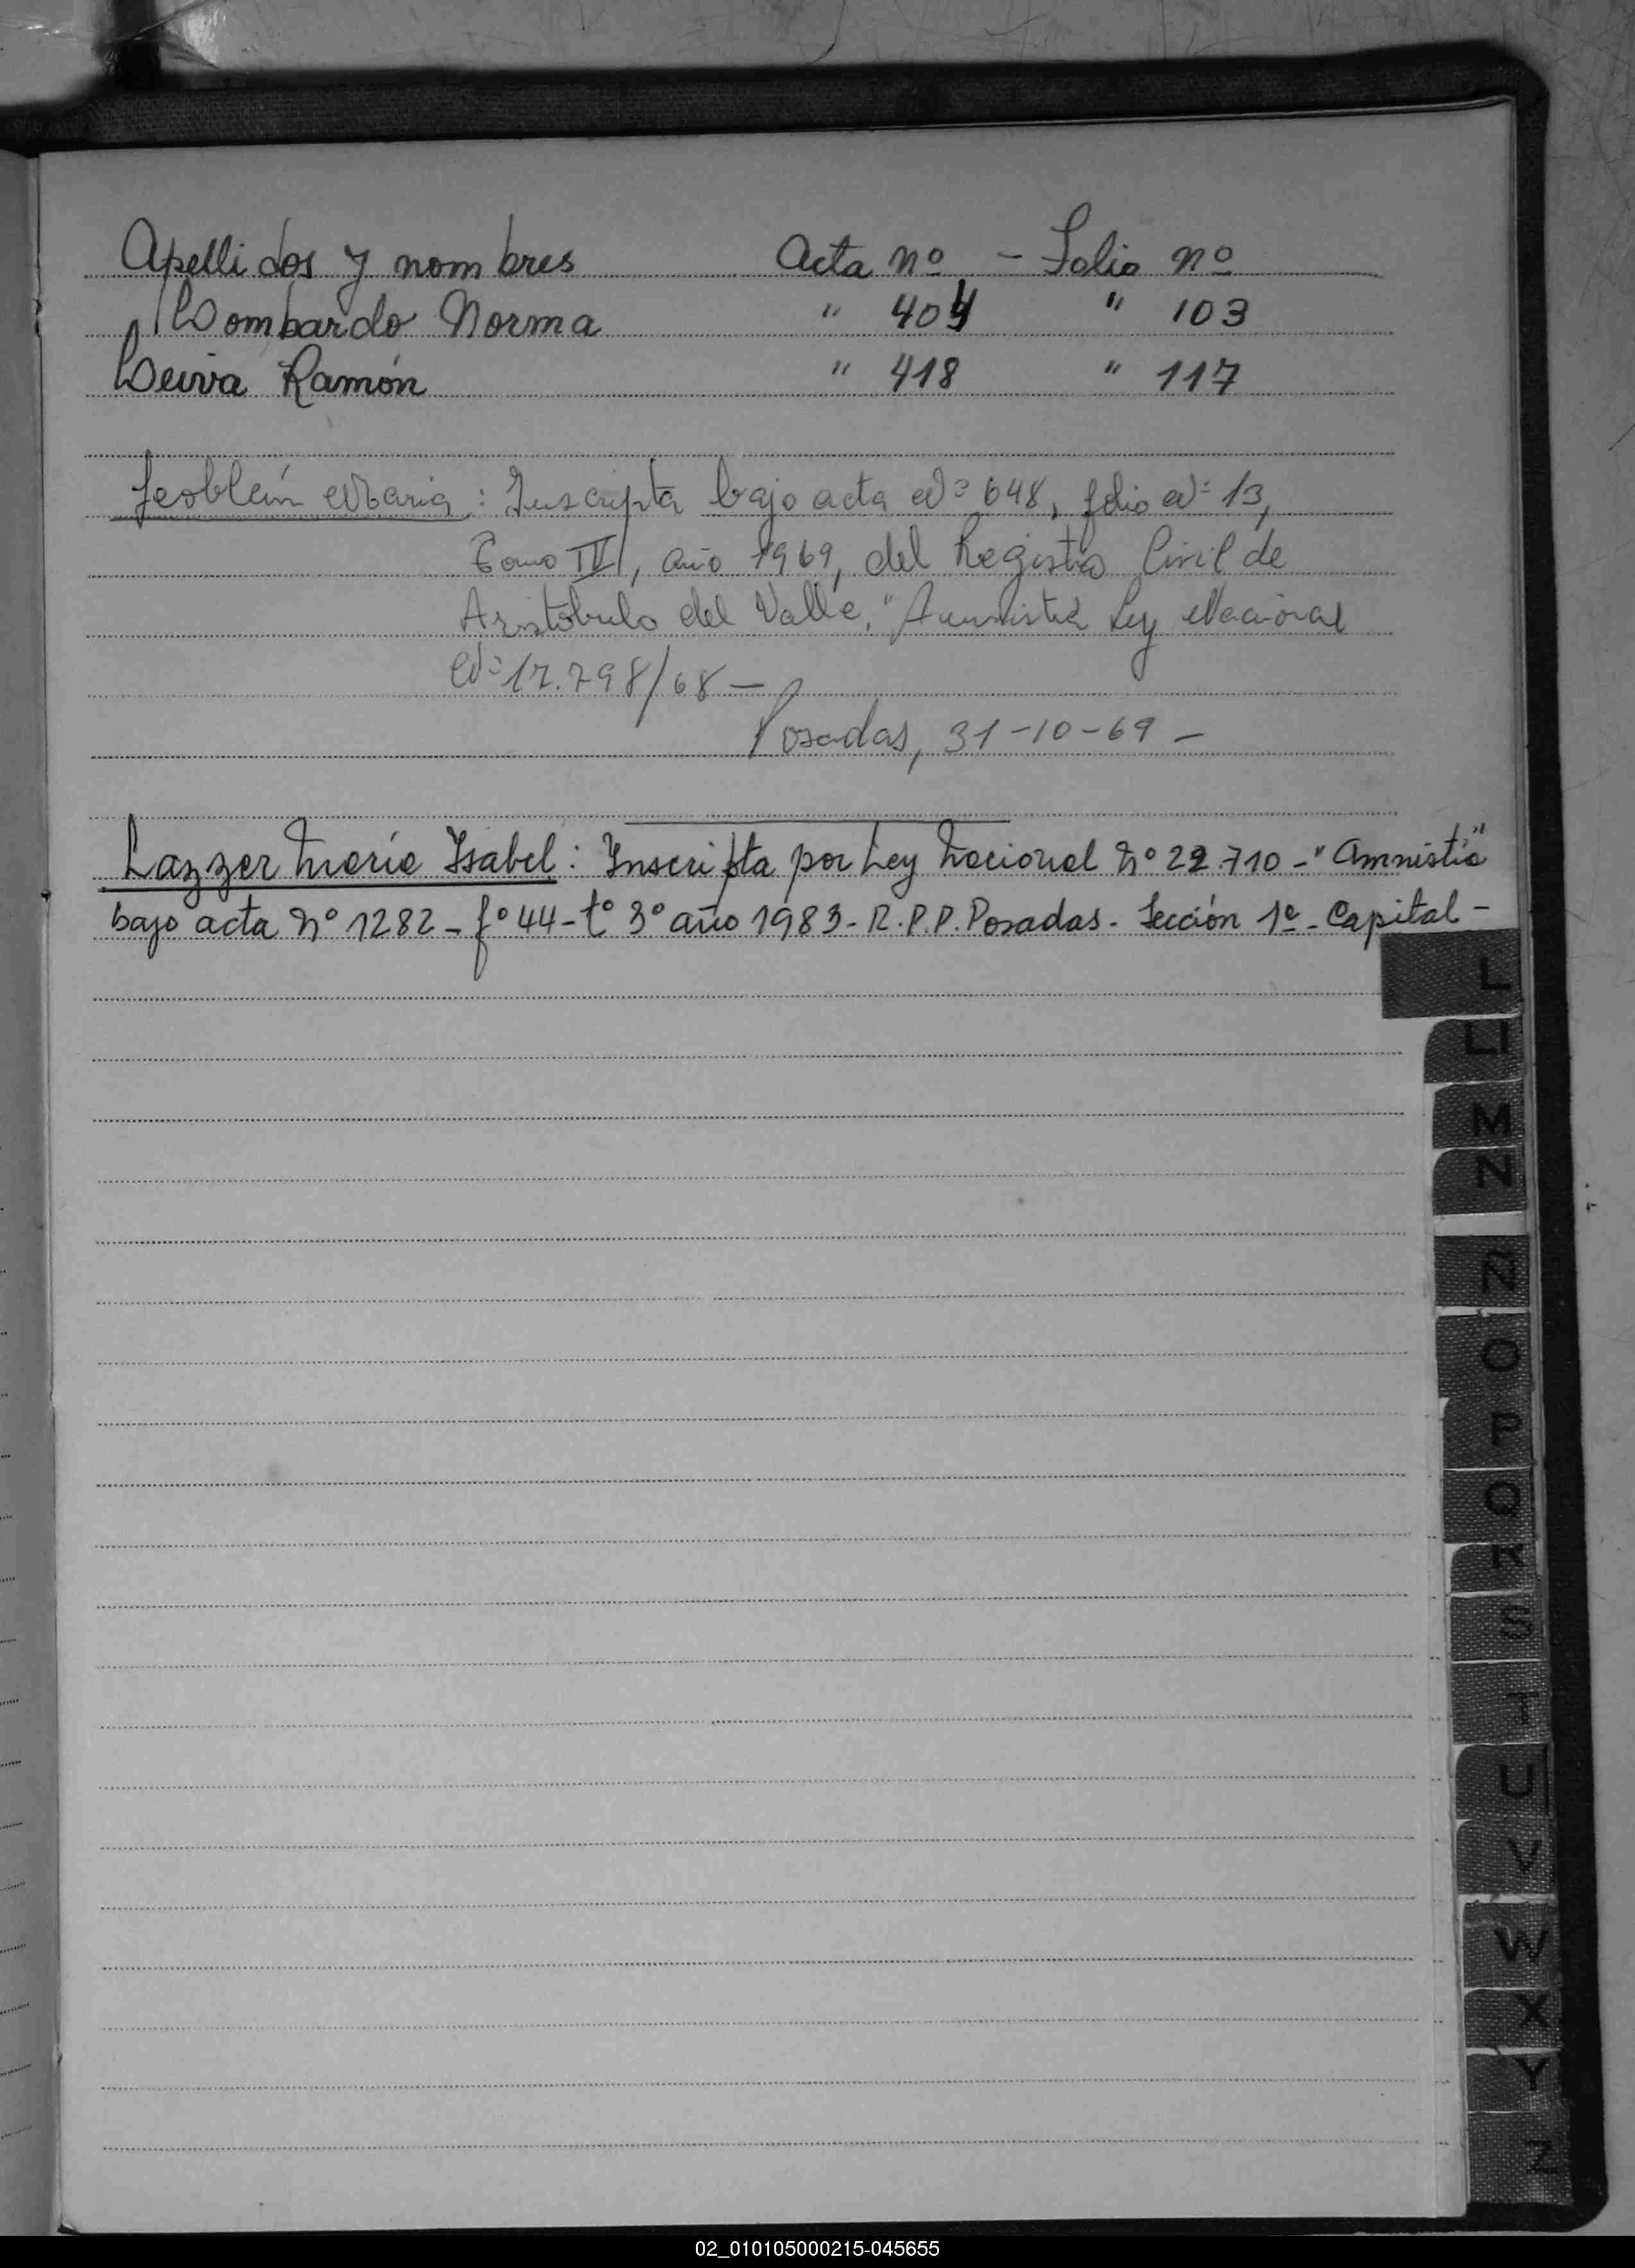 Apellidos y nombres Acta nº - Folio nº
Lombardo Norma " 404 " 103
Leiva Ramón " 418 " 117
Leoblein Maria: Inscripta bajo acta Nº 648, folio Nº 13,
Tomo IV, año 1969, del Registro Civil de
Aristóbulo del Valle. "Amnistia Ley Nacional
Nº 17.798/68 -
Posadas, 31-10-69 -
Lazzer María Isabel: Inscripta por Ley Nacional Nº 22.710 - "Amnistía"
bajo acta Nº 1282 - fº 44 - tº 3º año 1983 - R.P.P. Posadas - Sección 1ª - Capital -
L
Ll
M
N
Ñ
O
P
Q
R
S
T
U
V
W
X
Y
Z
02_010105000215-045655